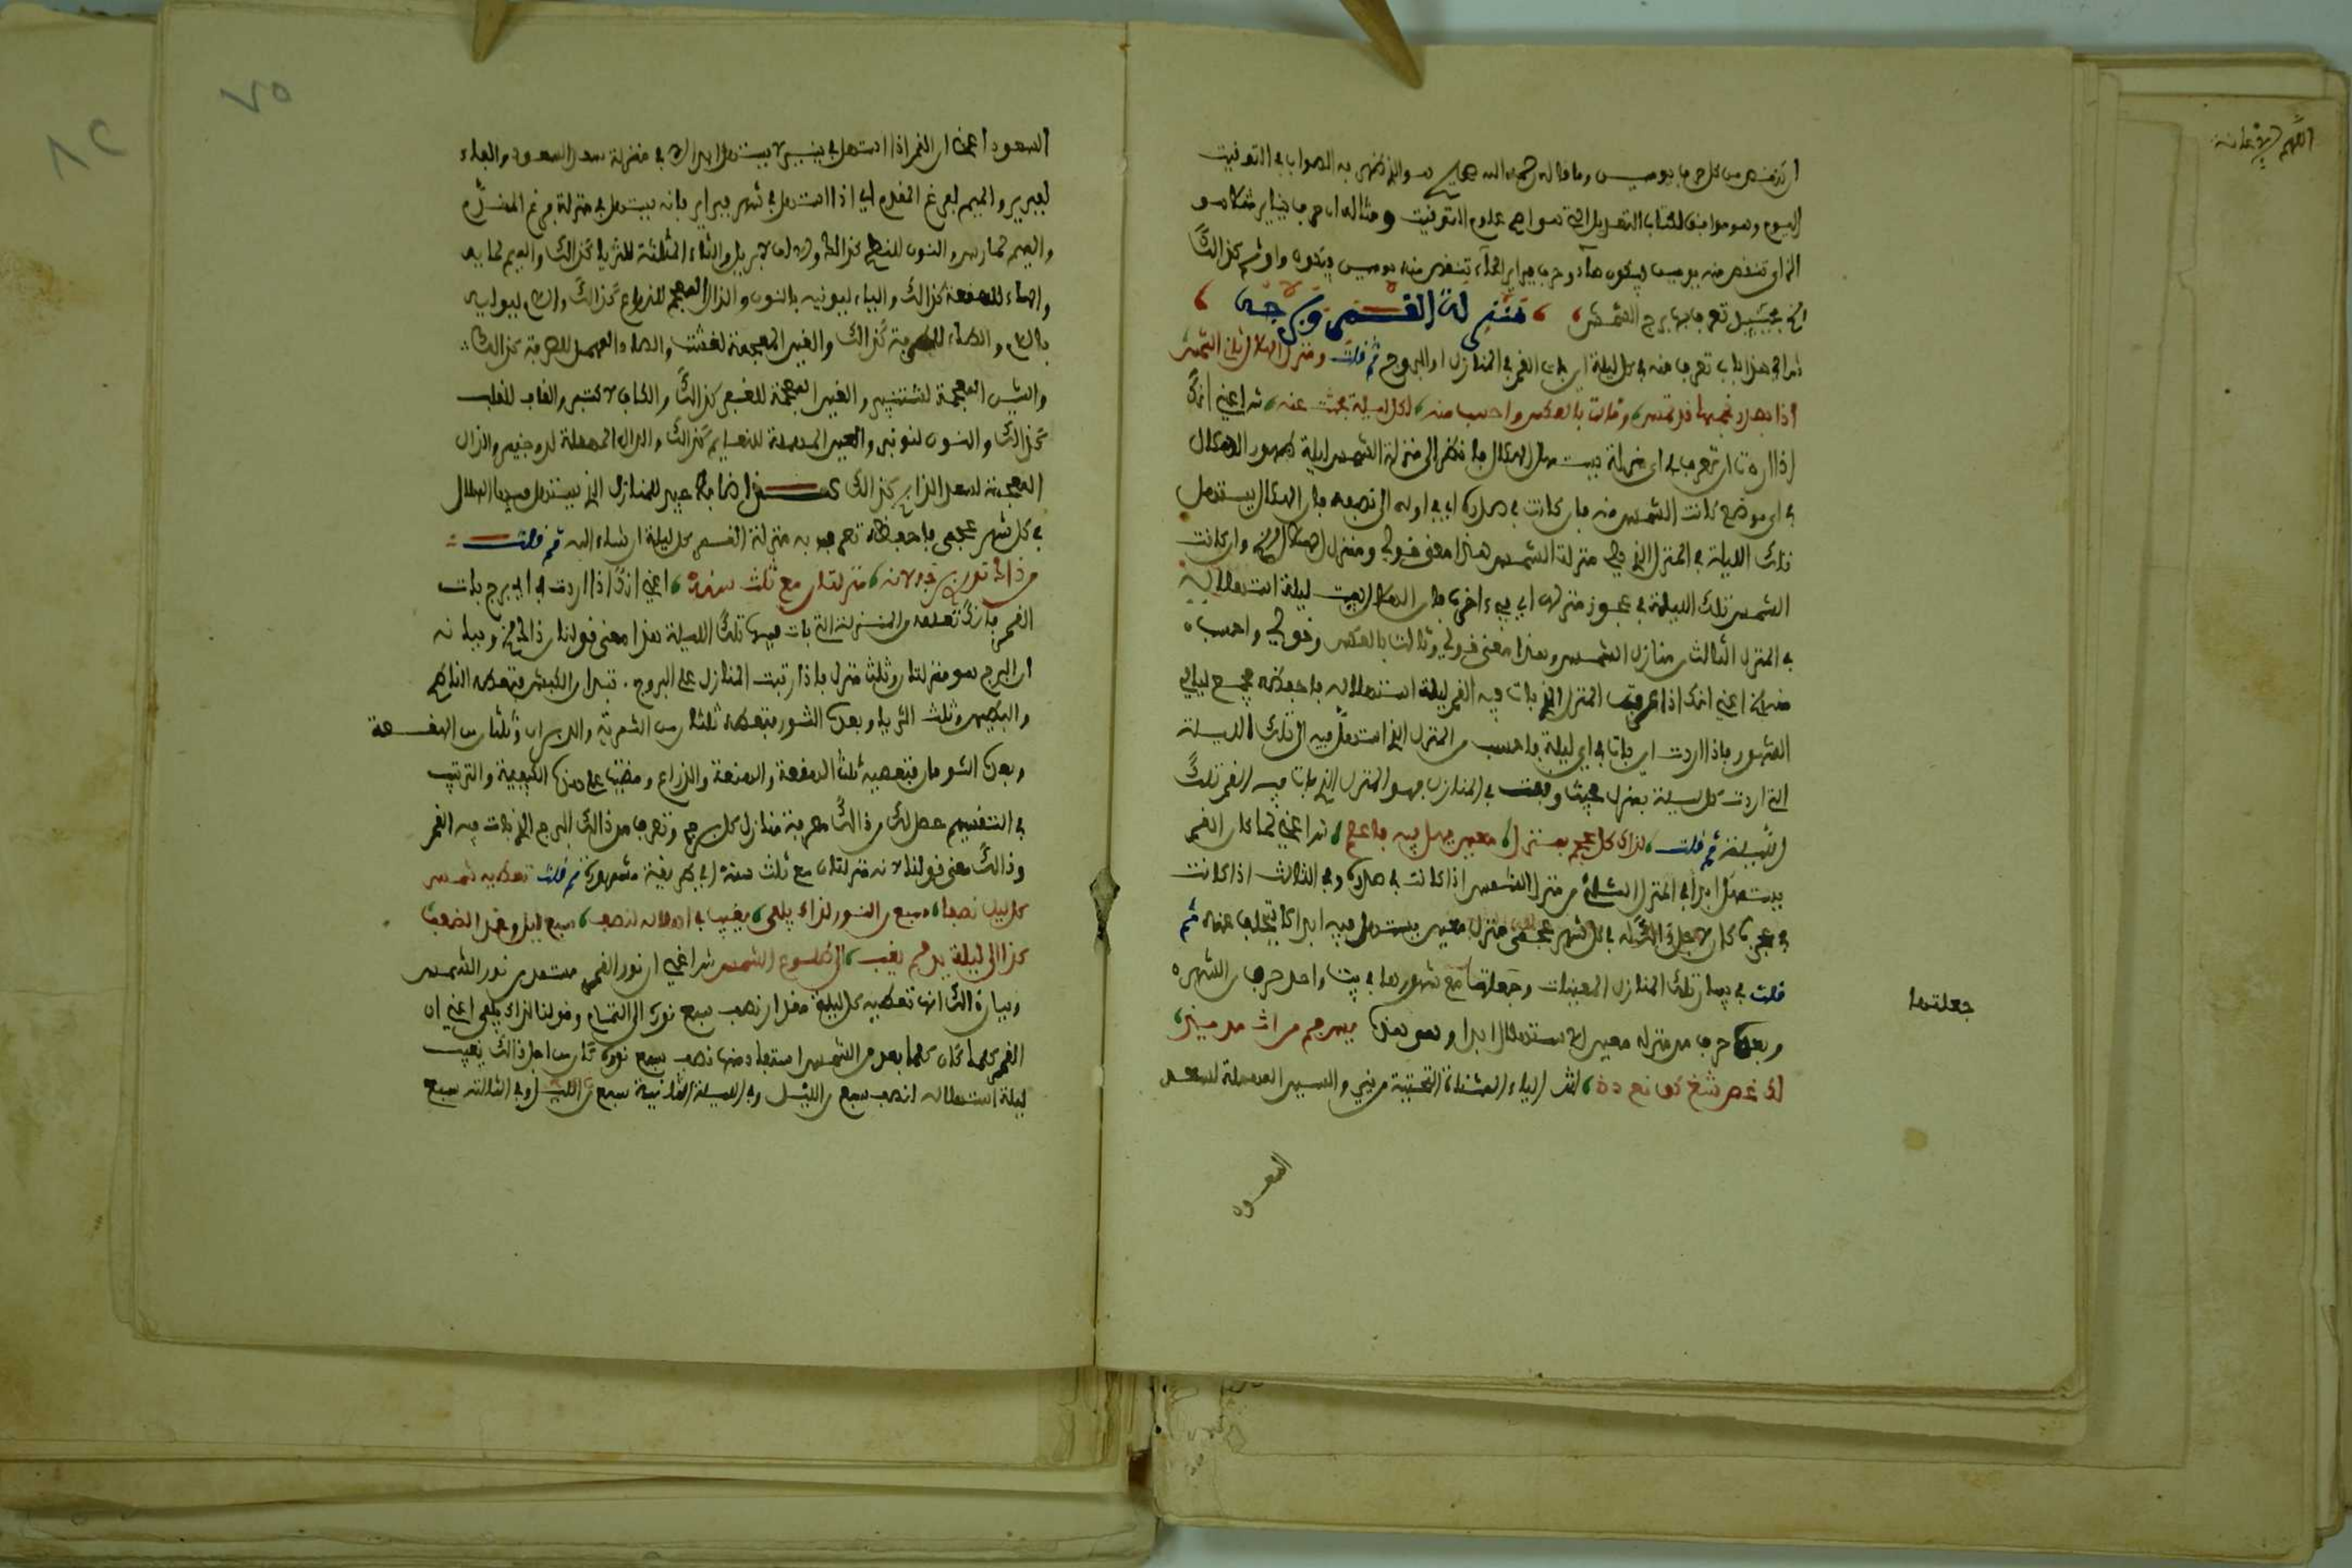 ان تنقص من كل حرف يومين وما قاله رحمه الله هو الذي ظهر به الصواب في التوقيت
اليوم وهو موافق لكتاب التعديل الذي هو اصح علوم التوقيت ومثاله ان حرف يناير مثلا هو
الزاي تنقص منه يومين فيكون هاء وحرف فبراير الحاء تنقص منه يومين وهكذا كذالك
منزلة القمر وبرجه
في هذا باب تعرف منه في كل ليلة اين بات القمر في المنازل او البروج ثم قلت ومنزل الهلال ثان الشمس
اذا بصدر نجمها قد تمس وثالث بالعكس واحسب منه لكل ليلة بحث عنه اعني انك
اذا اردت ان تعرف في اي منزلة يستهل الهلال فانظر الى منزلة الشمس ليلة ظهور الهلال
في اي موضع كانت الشمس منه فان كانت في صدره اي في اوله الى نصفه فان الهلال يستهل
تلك الليلة في المنزل الذي يلي منزلة الشمس هذا معنى قولي ومنزل الهلال الخ وان كانت
الشمس تلك الليلة في عجز منزلها اي في اخره فان الهلال يبيت ليلة استهلاله
في المنزل الثالث من منازل الشمس وهذا معنى قولي وثالث بالعكس وقولي واحسب
منه الخ اعني انك اذا عرفت المنزل الذي بات فيه القمر ليلة استهلاله فاحفظه جميع ليالي
الشهور فاذا اردت اين بات في اي ليلة فاحسب من المنزل الذي استهل فيه الى تلك الليلة
التي اردت كل ليلة بمنزل فحيث وقعت في المنازل فهو المنزل الذي بات فيه القمر تلك
الليلة ثم قلت لذاك كل عجم بمنزل معين يهل فيه فاعلم اعني لما كان القمر
يستهل ابدا في المنزل الثاني من منزل الشمس اذا كانت في صدره وفي الثالث اذا كانت
في عجزه كان لاجل ذالك له في كل شهر عجمي منزل معين يستهل فيه ابدا لا يتخلف عنه ثم
قلت في بيان تلك المنازل المعينات وجعلتها مع شهورها في بيت واحد حرف من الشهر
وبعده حرف من منزله معين لاستهلال ابدا وهو هذا
اللهم الاعانة
جعلتها
السعود
٧٥
السعود اعني ان القمر اذا استهل في ينير لا يستهل ابدا الا في منزلة سعد السعود والفاء
لفبرير والميم لفرغ المقدم اي اذا استهل في شهر فبراير فانه يستهل في منزلة فرغ المقدم
والميم لمارس والنون للنطح كذالك والالف لابريل والثاء المثلثة للثريا كذالك والميم لمايه
والهاء للهقعة كذالك والياء ليونيه بالنون والذال المعجمة للذراع كذالك واللام ليوليه
باللام والطاء للطرفة كذالك والغين المعجمة لغشت والصاد المهمل للصرفة كذالك
والشين المعجمة لشتنبر والغين المعجمة للغفر كذالك والكاف لاكتبر والقاف للقلب
كذالك والنون لنونبر والعين المهملة للنعايم كذالك والدال المهملة لدجنبر والذال
المعجمة لسعد الذابح كذالك هذا ضابط عجيب للمنازل التي يستهل فيها الهلال
في كل شهر عجمي فاحفظه تعرف به منزلة القمر كل ليلة ان شاء الله ثم قلت
من ذالك تدري برجه لانه منزلتان مع ثلث منه اعني انك اذا اردت في اي برج بات
القمر فانك تعلمه من المنزلة التي بات فيها تلك الليلة هذا معنى قولنا من ذالك الخ وبيانه
ان البرج هو منزلتان وثلث منزل فاذا رتبت المنازل على البروج تبدا من الكبش فتعطه الناطح
والبطين وثلث الثريا وبعده الثور فتعطه ثلثان من الثرية والدبران وثلثان من الهقعة
وبعده التومان فتعطيه ثلث الهقعة والهنعة والذراع ومضيت على هذه الكيفية والترتيب
في التقسيم حصل لك من ذالك معرفة منازل كل برج وتعرف من ذالك البرج الذي بات فيه القمر
وذالك معنى قولنا لانه منزلتان مع ثلث منه اي بطريقة مشهورة ثم قلت تعطيه شمس
كل ليل نصفا سبع من النور لذاك يلفى يغيب في اهلاله لنصف سبع ليل وخذ الضعف
كذا الى ليلة يد ثم يغب الى طلوع الشمس اعني ان نور القمر مستمد من نور الشمس
وبيان ذالك انها تعطيه كل ليلة مقدار نصف سبع نوره الى التمام وقولنا لذاك يلفى اعني ان
القمر لما كان كلما بعد من الشمس استفاد منها نصف سبع نوره كان من اجل ذالك يغيب
ليلة استهلاله لنصف سبع من الليل وفي الليلة الثانية سبع من الليل وفي الثالثة سبع